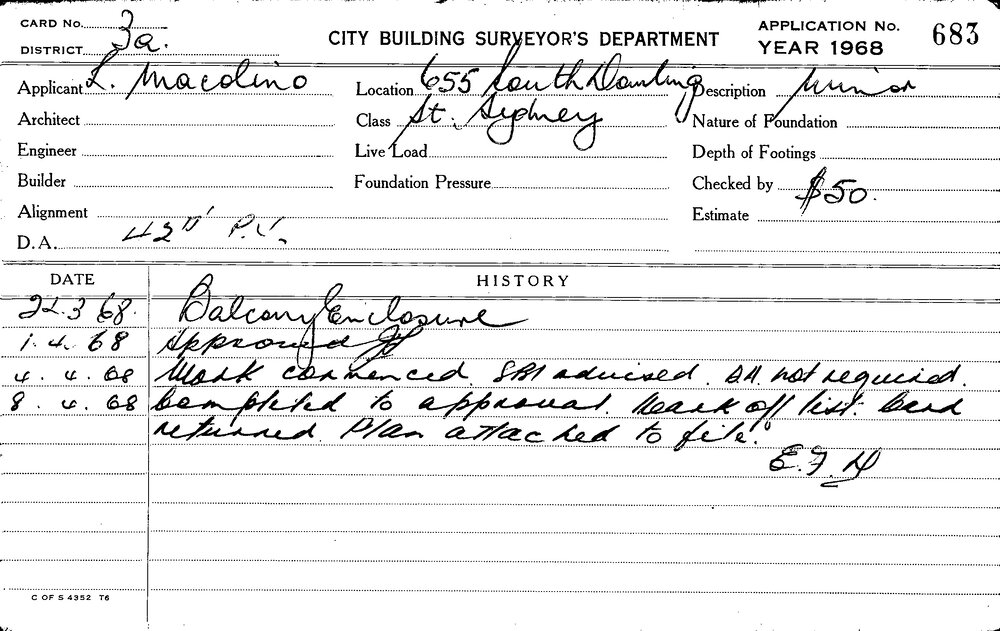 CARD No.
DISTRICT 3a.
CITY BUILDING SURVEYOR'S DEPARTMENT
APPLICATION No. 683
YEAR 1968
Applicant L. Macolino
Location 655 South Dowling
Description Minor
Architect
Class St. Sydney
Nature of Foundation
Engineer
Live Load
Depth of Footings
Builder
Foundation Pressure
Checked by $50.
Alignment
Estimate
D.A.
DATE HISTORY
22.3.68. Balcony Enclosure
1.4.68 Approved
4.4.68 Work commenced. advised. not required.
8.4.68 Completed to approval. Mark off list. Card
returned. Plan attached to file.
C OF S 4352 T6